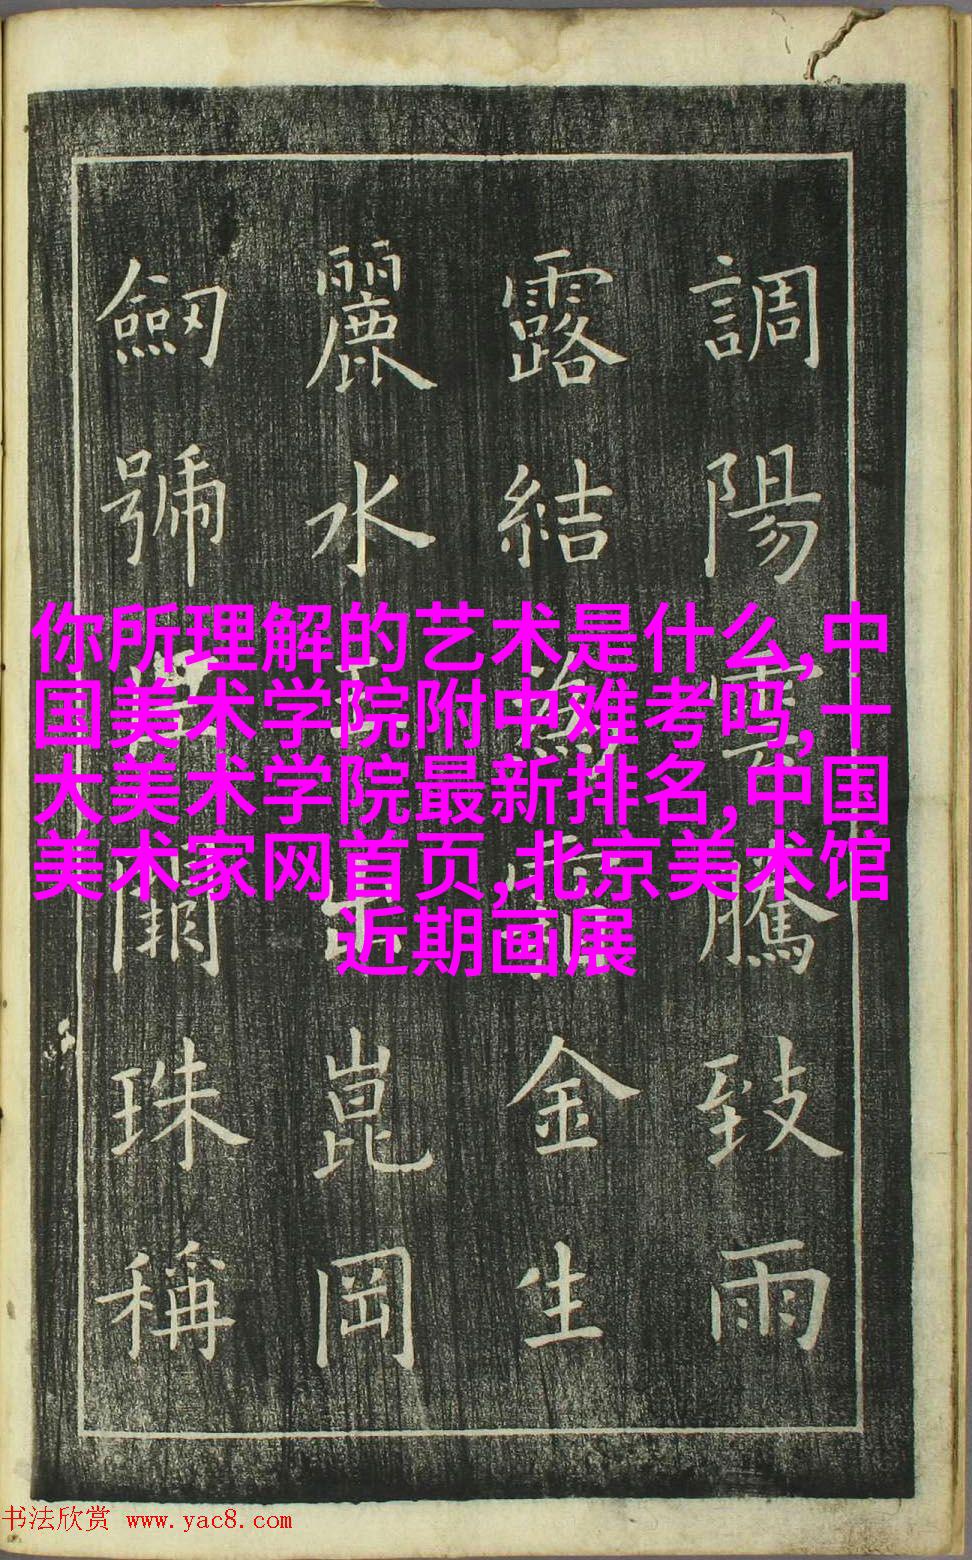 調陽雲騰致雨
露結金生
麗水出崑岡
劒號闕珠稱
你所理解的艺术是什么,中
国美术学院附中难考吗,十
大美术学院最新排名,中国
美术家网首页,北京美术馆
近期画展
书法欣赏 www.yac8.com